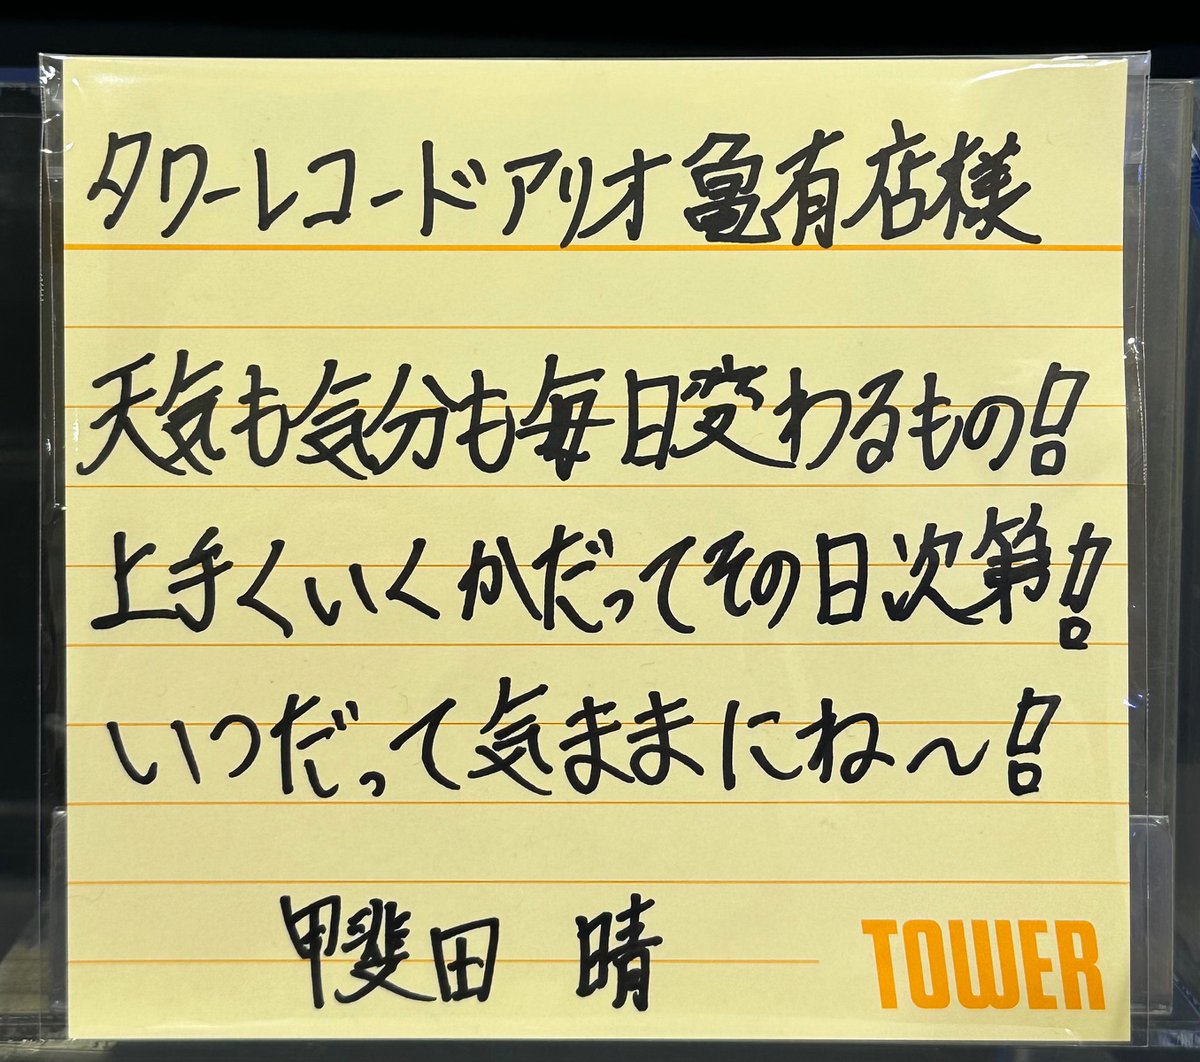 タワーレコードアリオ亀有店様
天気も気分も毎日変わるもの!
上手くいくかだってその日次第!
いつだって気ままにね〜!
甲斐田 晴
TOWER